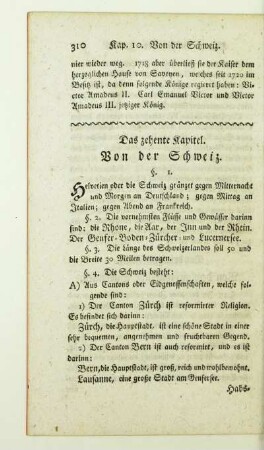 310 Kap. 10. Von der Schweiz.
vier wieder weg. 1718 aber überließ sie der Kaiser dem
herzoglichen Hause von Savoyen, welches seit 1720 im
Besitz ist, da denn folgende Könige regieret haben: Vi-
ctor Amadeus II. Carl Emanuel Victor und Victor
Amadeus III. jetziger König.
Das zehente Kapitel.
Von der Schweiz.
§. 1.
Helvetien oder die Schweiz gränzet gegen Mitternacht
und Morgen an Deutschland; gegen Mittag an
Italien; gegen Abend an Frankreich.
§. 2. Die vornehmsten Flüsse und Gewässer darinn
sind: die Rhone, die Aar, der Inn und der Rhein.
Der Genfer-Boden-Zürcher- und Lucernersee.
§. 3. Die Länge des Schweizerlandes soll 50 und
die Breite 30 Meilen betragen.
§. 4. Die Schweiz besteht:
A) Aus Cantons oder Eidgenossenschaften, welche fol-
gende sind:
1) Der Canton Zürch ist reformirter Religion.
Es befindet sich darinn:
Zürch, die Hauptstadt, ist eine schöne Stadt in einer
sehr bequemen, angenehmen und fruchtbaren Gegend.
2) Der Canton Bern ist auch reformiret, und es ist
darinn:
Bern, die Hauptstadt, ist groß, reich und wohlbewohnt.
Lausanne, eine große Stadt am Genfersee.
Habs-